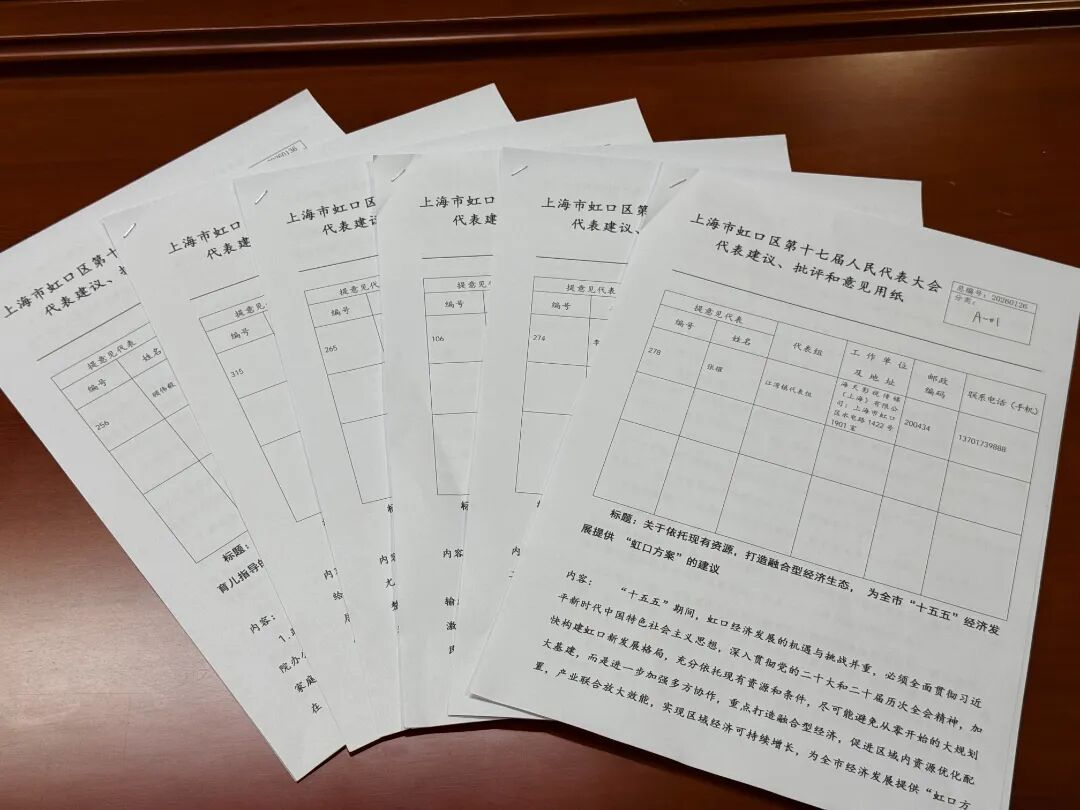 20260136
上海市虹口区第十
代表建议、批
提意见代表
编号
姓名
256
标题:
育儿指导的
内容:
1.
院办
家庭
在
上海市虹口区
代表建
提意见代
编号
315
上海市虹口区
代表建议
提意见代
编号
265
内
给
上海市虹口
代表建
提意见代
编号
106
标
内容
输
激
上海市虹口区第
代表建议、
提意见代表
编号
274
李
标
内容
上海市虹口区第十七届人民代表大会
代表建议、批评和意见用纸
总编号:20260126
分类:
A-01
提意见代表
编号
姓名
代表组
工作单位
及地址
邮政
编码
联系电话(手机)
278
张
江湾镇代表组
海天影视传媒
(上海)有限公
司;上海市虹口
区水电路1422号
1901室
200434
13701739888
标题:关于依托现有资源,打造融合型经济生态,为全市“十五五”经济发
展提供“虹口方案”的建议
内容: “十五五”期间,虹口经济发展的机遇与挑战并重,必须全面贯彻习近
平新时代中国特色社会主义思想,深入贯彻党的二十大和二十届历次全会精神,加
快构建虹口新发展格局,充分依托现有资源和条件,尽可能避免从零开始的大规划
大基建,而是进一步加强多方协作,重点打造融合型经济,促进区域内资源优化配
置,产业联合放大效能,实现区域经济可持续增长,为全市经济发展提供“虹口方